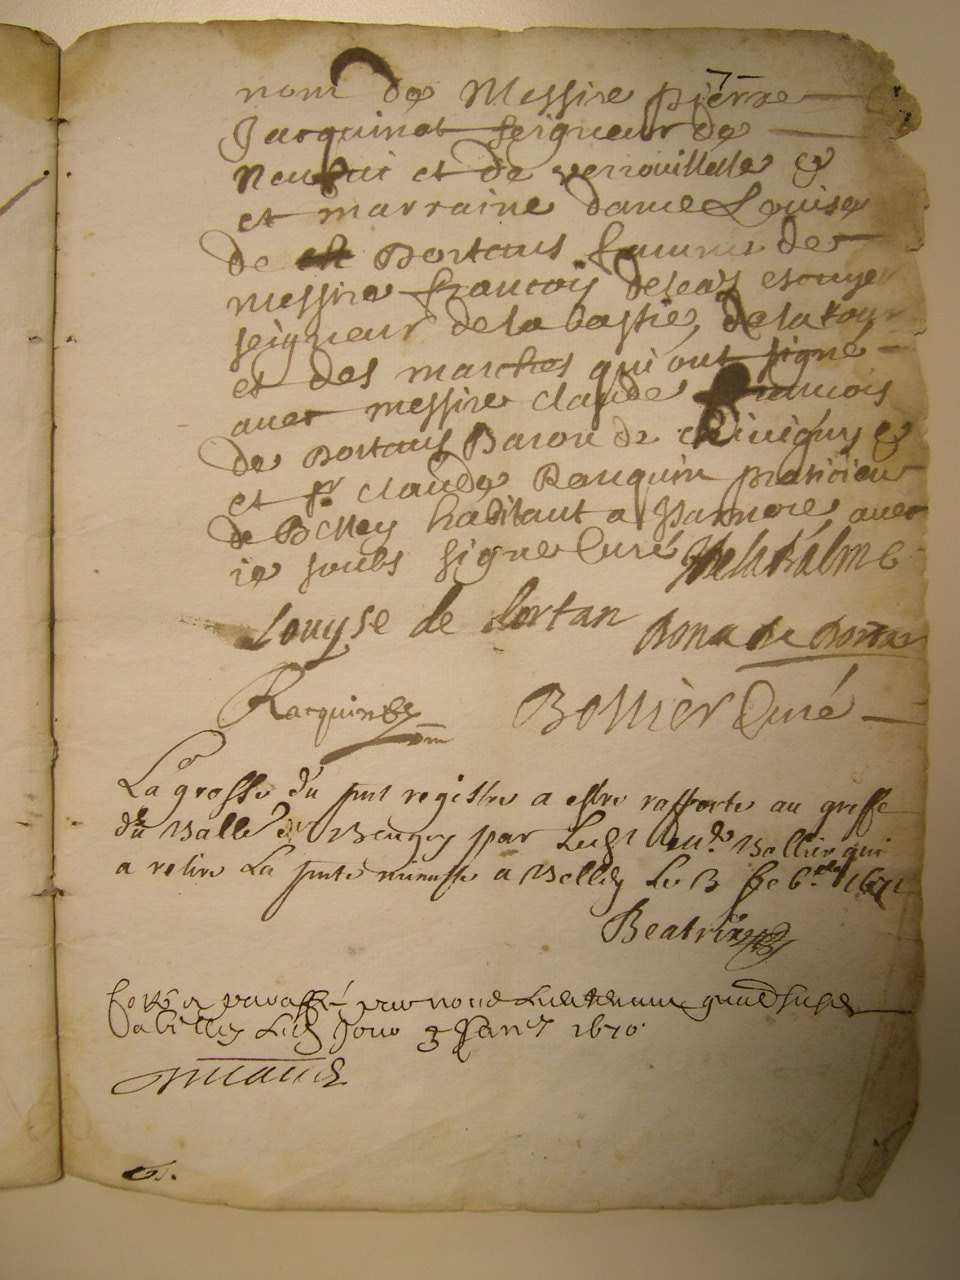 nom de Messire pierre
Jacquinot seigneur de
et de verrouillelle &
et marraine dame Louise
de Dortans femme de
Messire francois deleaz escuye
seigneur de la bastie, de la tour
et des marches qui ont signé
auec messire claude francois
de Dortans Baron de &
et sr claude Racquin praticien
de Belley habitant a auec
ie soubs signe Curé
Louyse de dortan Dona de Dortan
Racquin Bollier Curé
La grosse du pnt registre a estre rapporte au greffe
du Balle de Beugey par Bollier qui
a retire La pnte minutte a Belley Le 3 feb 1671
Beatrix
paraffé par nous Lieutenant
a belley Led Jour 3 Janv 1670